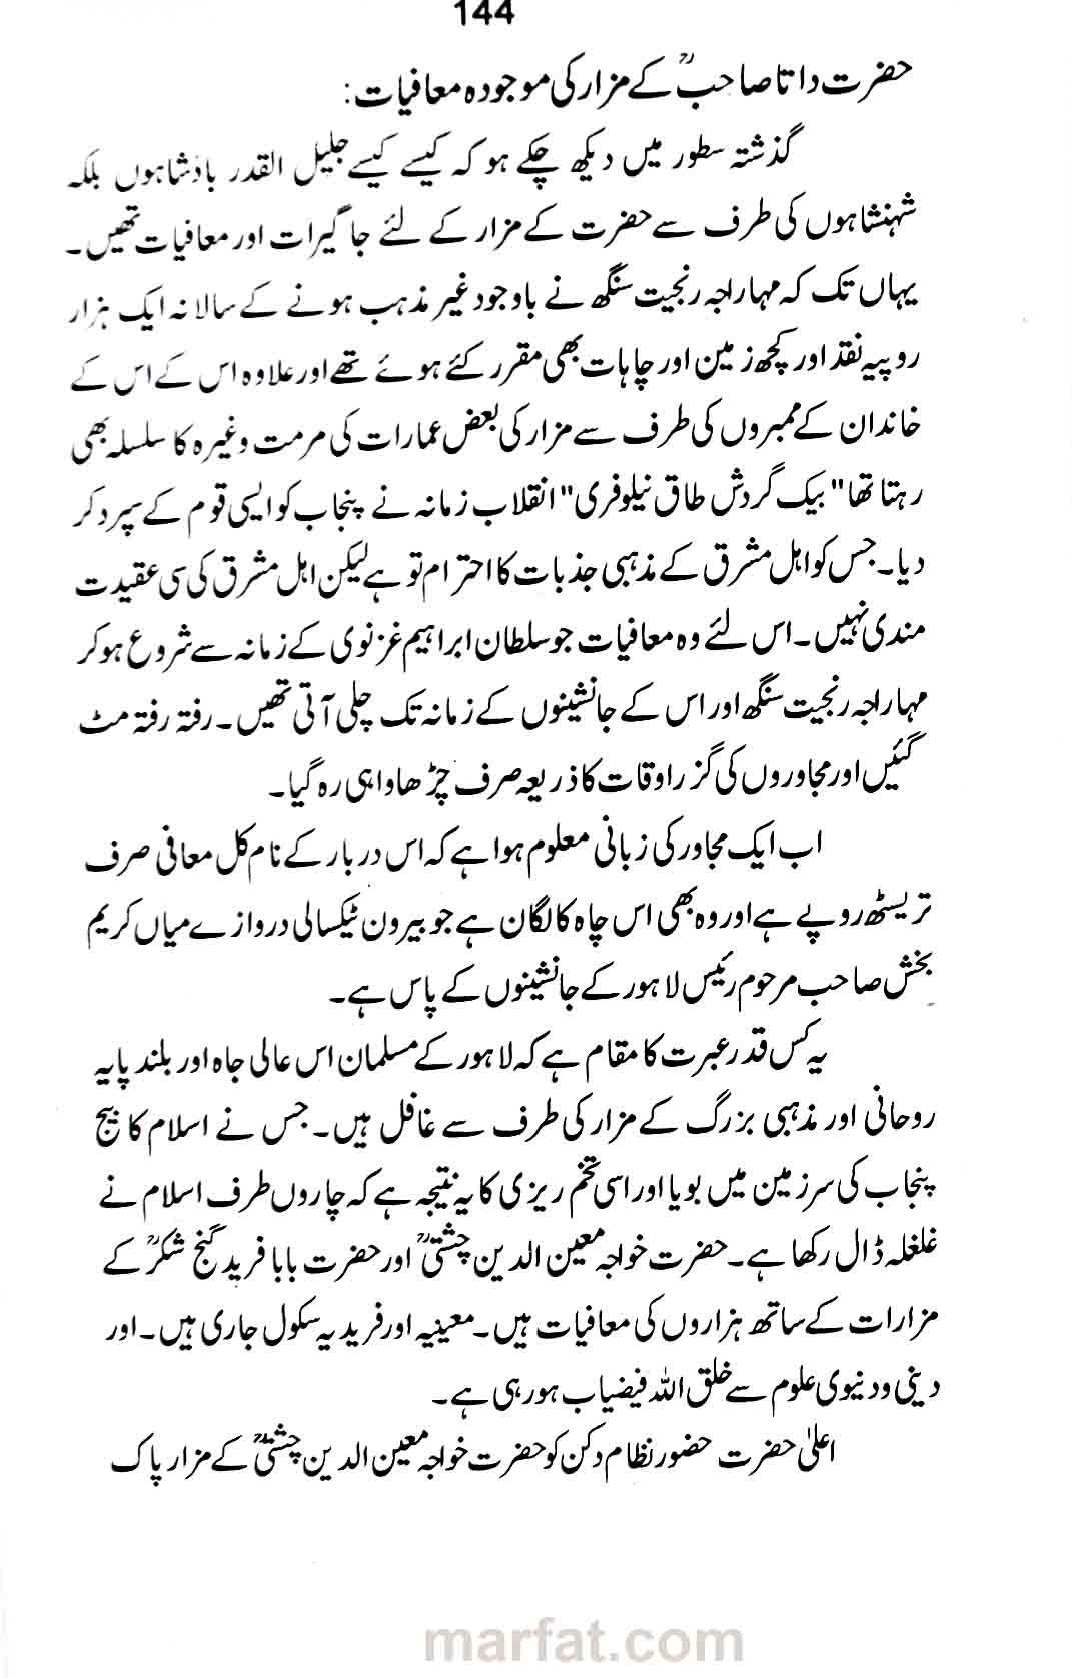 144
حضرت داتا صاحبؒ کے مزار کی موجودہ معافیات:
گذشتہ سطور میں دیکھ چکے ہو کہ کیسے کیسے جلیل القدر بادشاہوں بلکہ
شہنشاہوں کی طرف سے حضرت کے مزار کے لئے جاگیرات اور معافیات تھیں۔
یہاں تک کہ مہاراجہ رنجیت سنگھ نے باوجود غیر مذہب ہونے کے سالانہ ایک ہزار
روپیہ نقد اور کچھ زمین اور چاہات بھی مقرر کئے ہوئے تھے اور علاوہ اس کے اس کے
خاندان کے ممبروں کی طرف سے مزار کی بعض عمارات کی مرمت وغیرہ کا سلسلہ بھی
رہتا تھا "بیک گردش طاق نیلوفری" انقلاب زمانہ نے پنجاب کو ایسی قوم کے سپرد کر
دیا۔ جس کو اہل مشرق کے مذہبی جذبات کا احترام تو ہے لیکن اہل مشرق کی سی عقیدت
مندی نہیں۔ اس لئے وہ معافیات جو سلطان ابراہیم غزنوی کے زمانہ سے شروع ہو کر
مہاراجہ رنجیت سنگھ اور اس کے جانشینوں کے زمانہ تک چلی آتی تھیں۔ رفتہ رفتہ مٹ
گئیں اور مجاوروں کی گزر اوقات کا ذریعہ صرف چڑھاوا ہی رہ گیا۔
اب ایک مجاور کی زبانی معلوم ہوا ہے کہ اس دربار کے نام کل معافی صرف
تریسٹھ روپے ہے اور وہ بھی اس چاہ کا لگان ہے جو بیرون ٹیکسالی دروازے میاں کریم
بخش صاحب مرحوم رئیس لاہور کے جانشینوں کے پاس ہے۔
یہ کس قدر عبرت کا مقام ہے کہ لاہور کے مسلمان اس عالی جاہ اور بلند پایہ
روحانی اور مذہبی بزرگ کے مزار کی طرف سے غافل ہیں۔ جس نے اسلام کا بیج
پنجاب کی سرزمین میں بویا اور اسی تخم ریزی کا یہ نتیجہ ہے کہ چاروں طرف اسلام نے
غلغلہ ڈال رکھا ہے۔ حضرت خواجہ معین الدین چشتیؒ اور حضرت بابا فرید گنج شکرؒ کے
مزارات کے ساتھ ہزاروں کی معافیات ہیں۔ معینیہ اور فریدیہ سکول جاری ہیں۔ اور
دینی و دنیوی علوم سے خلق اللہ فیضیاب ہو رہی ہے۔
اعلیٰ حضرت حضور نظام دکن کو حضرت خواجہ معین الدین چشتیؒ کے مزار پاک
marfat.com